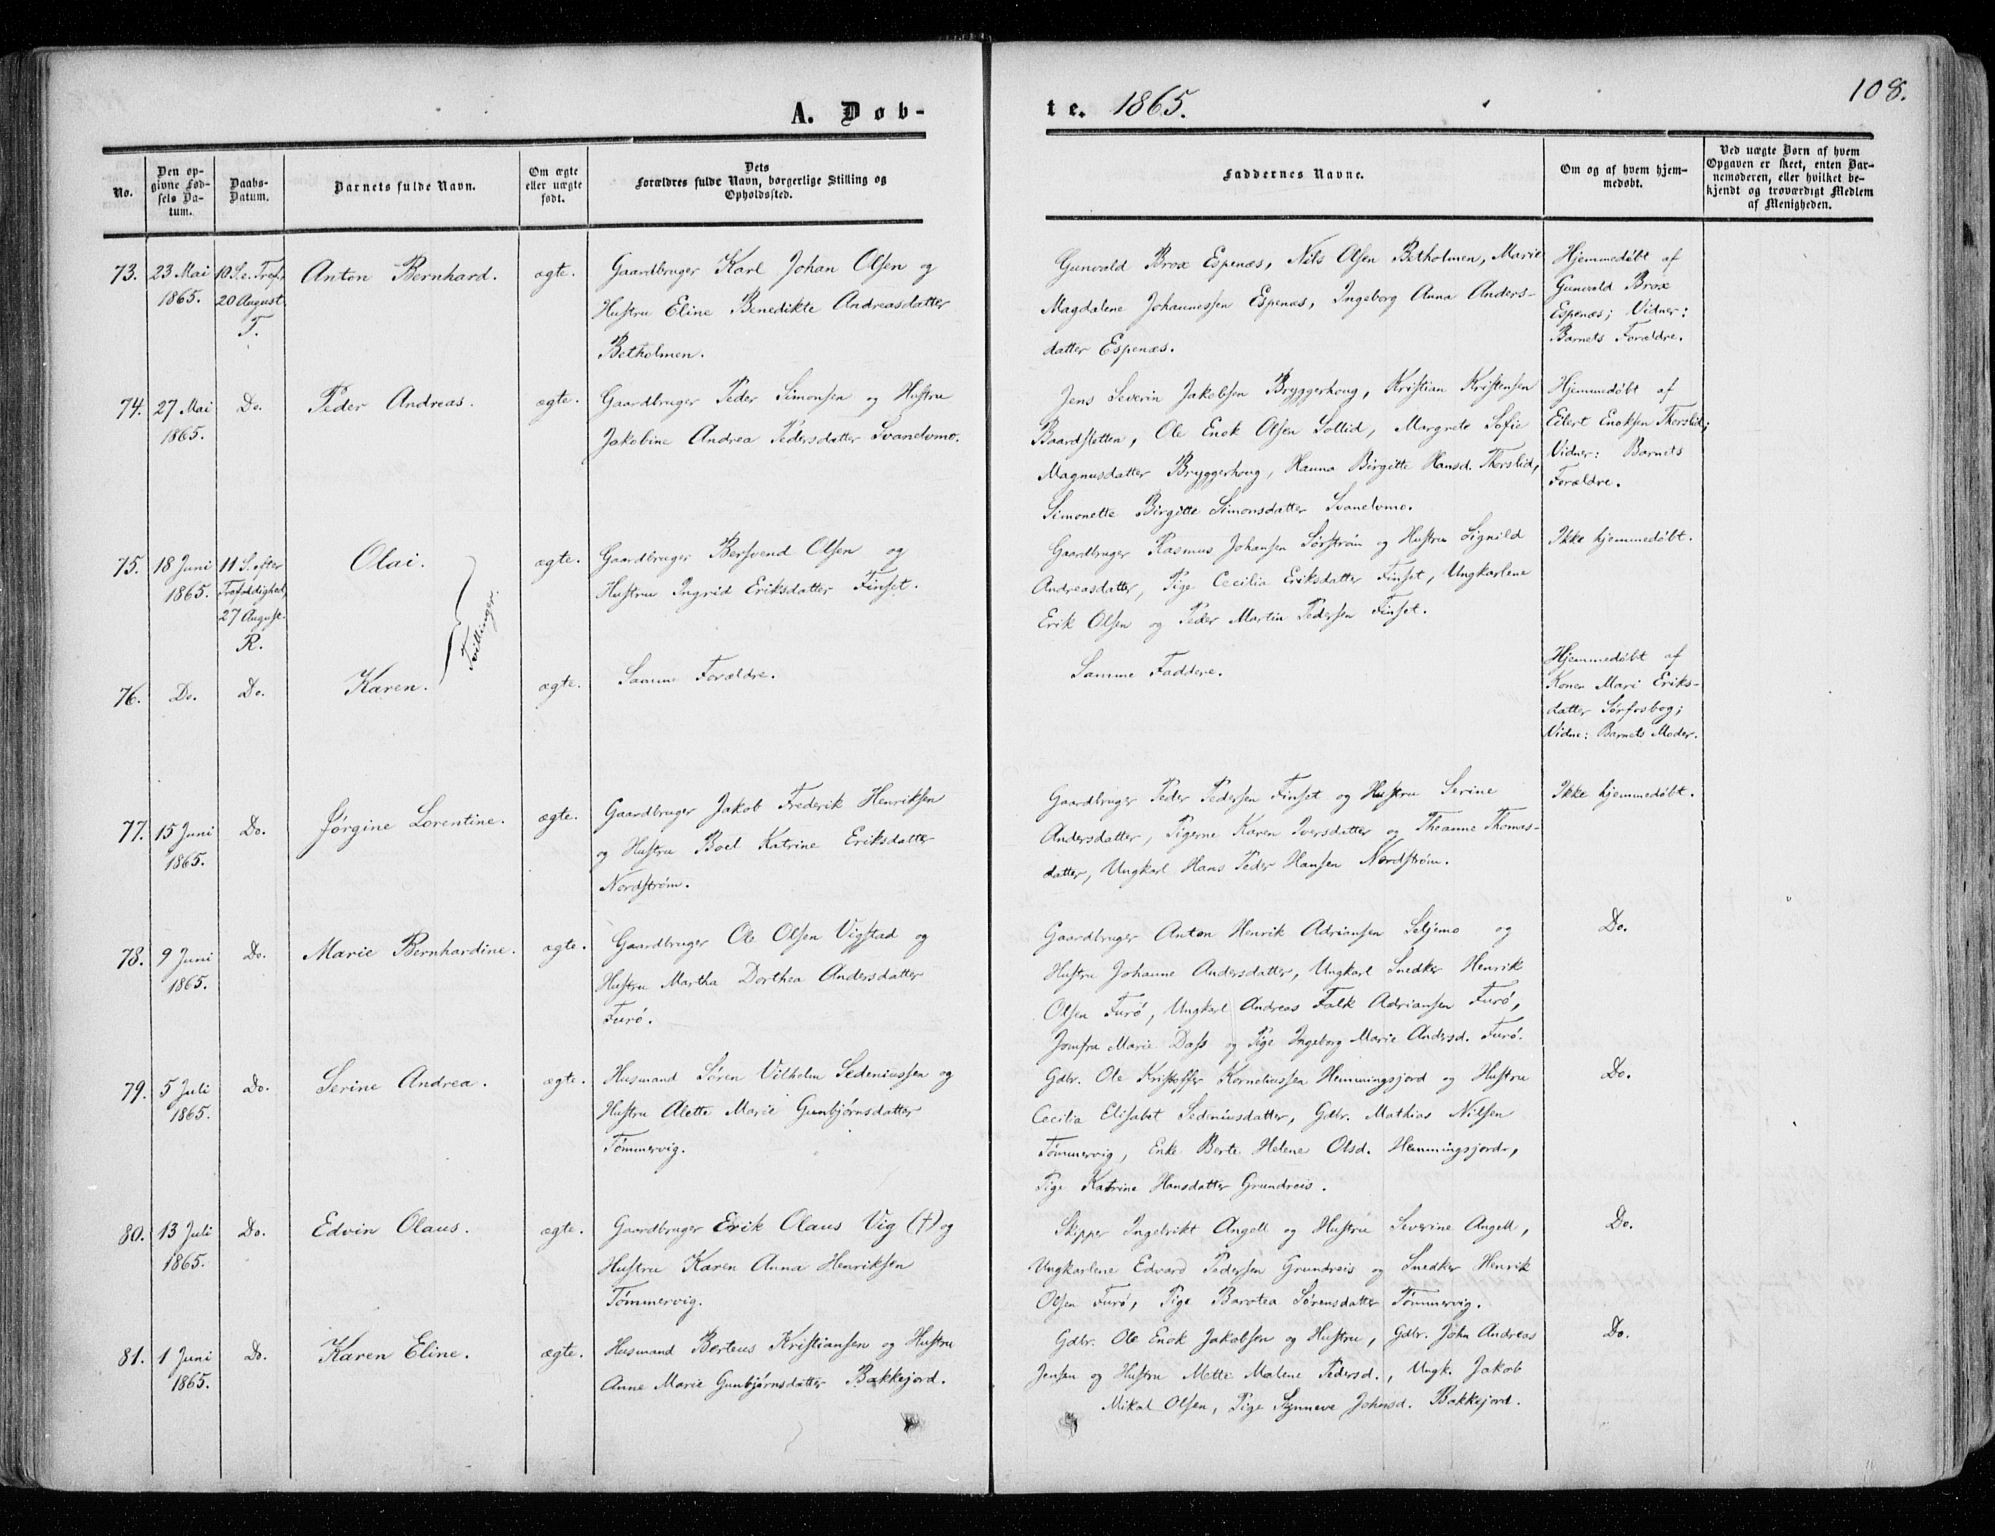 108.
A. Døb-
te. 1865.
No.
Den op-
givne Fød-
sels Da-
tum.
Daabs-
Datum.
Barnets fulde Navn.
Om ægte
eller uægte
født.
Dets
Forældres fulde Navn, borgerlige Stilling og
Opholdssted.
Faddernes Navne.
Om og af hvem hjem-
medøbt.
Ved uægte Børn af hvem
Opgaven er skeet, enten Bar-
nemoderen, eller hvilket be-
kjendt og troværdigt Medlem
af Menigheden.
73. 23 Mai
1865.
10 S. e. Tref.
20 August.
T.
Anton Bernhard.
ægte.
Gaardbruger Karl Johan Olsen og
Hustru Eline Benedikte Andreasdatter
Betholmen.
Gunvald Brox Espenæs, Nils Olsen Betholmen, Marie
Magdalene Johannessen Espenæs, Ingeborg Anna Anders-
datter Espenæs.
Hjemmedøbt af
Gunvald Brox
Espenæs; Vidner:
Barnets Forældre.
74. 27 Mai
1865.
Do.
Peder Andreas.
ægte.
Gaardbruger Peder Simonsen og Hustru
Jakobine Andrea Pedersdatter Svanelvmo.
Jens Severin Jakobsen Bryggerhoug, Kristian Kristensen
Baardsletten, Ole Enok Olsen Sollid, Margrete Sofie
Magnusdatter Bryggerhoug, Hanna Birgitte Hansd. Thorslid,
Simonette Birgitte Simonsdatter Svanelvmo.
Hjemmedøbt af
Eilert Enoksen Thorslid;
Vidner: Barnets
Forældre.
75. 18 Juni
1865.
11 S. efter
Trefoldighed,
27 August.
R.
Olai.
Tvillinger.
ægte.
Gaardbruger Bersvend Olsen og
Hustru Ingrid Eriksdatter Finset.
Gaardbruger Rasmus Johansen Sørstrøm og Hustru Signild
Andreasdatter, Pige Cecilia Eriksdatter Finset, Ungkarlene
Erik Olsen og Peder Martin Pedersen Finset.
Ikke hjemmedøbt.
76. Do.
Do.
Karen.
ægte.
Samme Forældre.
Samme Faddere.
Hjemmedøbt af
Konen Mari Eriks-
datter Sørfosbog;
Vidne: Barnets Moder.
77. 15 Juni
1865.
Do.
Jørgine Lorentine.
ægte.
Gaardbruger Jakob Frederik Henriksen
og Hustru Boel Katrine Eriksdatter
Nordstrøm.
Gaardbruger Peder Pedersen Finset og Hustru Serine
Andersdatter, Pigerne Karen Iversdatter og Theanne Thomas-
datter, Ungkarl Hans Peder Hansen Nordstrøm.
Ikke hjemmedøbt.
78. 9 Juni
1865.
Do.
Marie Bernhardine.
ægte.
Gaardbruger Ole Olsen Vigstad og
Hustru Martha Dorthea Andersdatter
Furø.
Gaardbruger Anton Henrik Adriansen Seljemo og
Hustru Johanne Andersdatter, Ungkarl Snedker Henrik
Olsen Furø, Ungkarl Andreas Falk Adriansen Furø,
Jomfru Marie Dass og Pige Ingeborg Marie Andersd. Furø.
Do.
79. 5 Juli
1865.
Do.
Serine Andrea.
ægte.
Husmand Søren Vilhelm Sedeniussen og
Hustru Alette Marie Gunbjørnsdatter
Tømmervig.
Gdbr. Ole Kristoffer Korneliussen Hemmingsjord og Hustru
Cecilia Elisabet Sedeniusdatter, Gdbr. Mathias Nilsen
Tømmervig, Enke Berte Helene Olsd. Hemmingsjord,
Pige Katrine Hansdatter Grundreis.
Do.
80. 13 Juli
1865.
Do.
Edvin Olaus.
ægte.
Gaardbruger Erik Olaus Vig (†) og
Hustru Karen Anna Henriksen
Tømmervig.
Skipper Ingebrikt Angell og Hustru Severine Angell,
Ungkarlene Edvard Pedersen Grundreis og Snedker Henrik
Olsen Furø, Pige Barotea Sørensdatter Tømmervig.
Do.
81. 1 Juni
1865.
Do.
Karen Eline.
ægte.
Husmand Berteus Kristiansen og Hustru
Anne Marie Gunbjørnsdatter Bakkejord.
Gdbr. Ole Enok Jakobsen og Hustru, Gdbr. John Andreas
Jensen og Hustru Mette Malene Pedersd., Ungk. Jakob
Mikal Olsen, Pige Synneve Johnsd. Bakkejord.
Do.